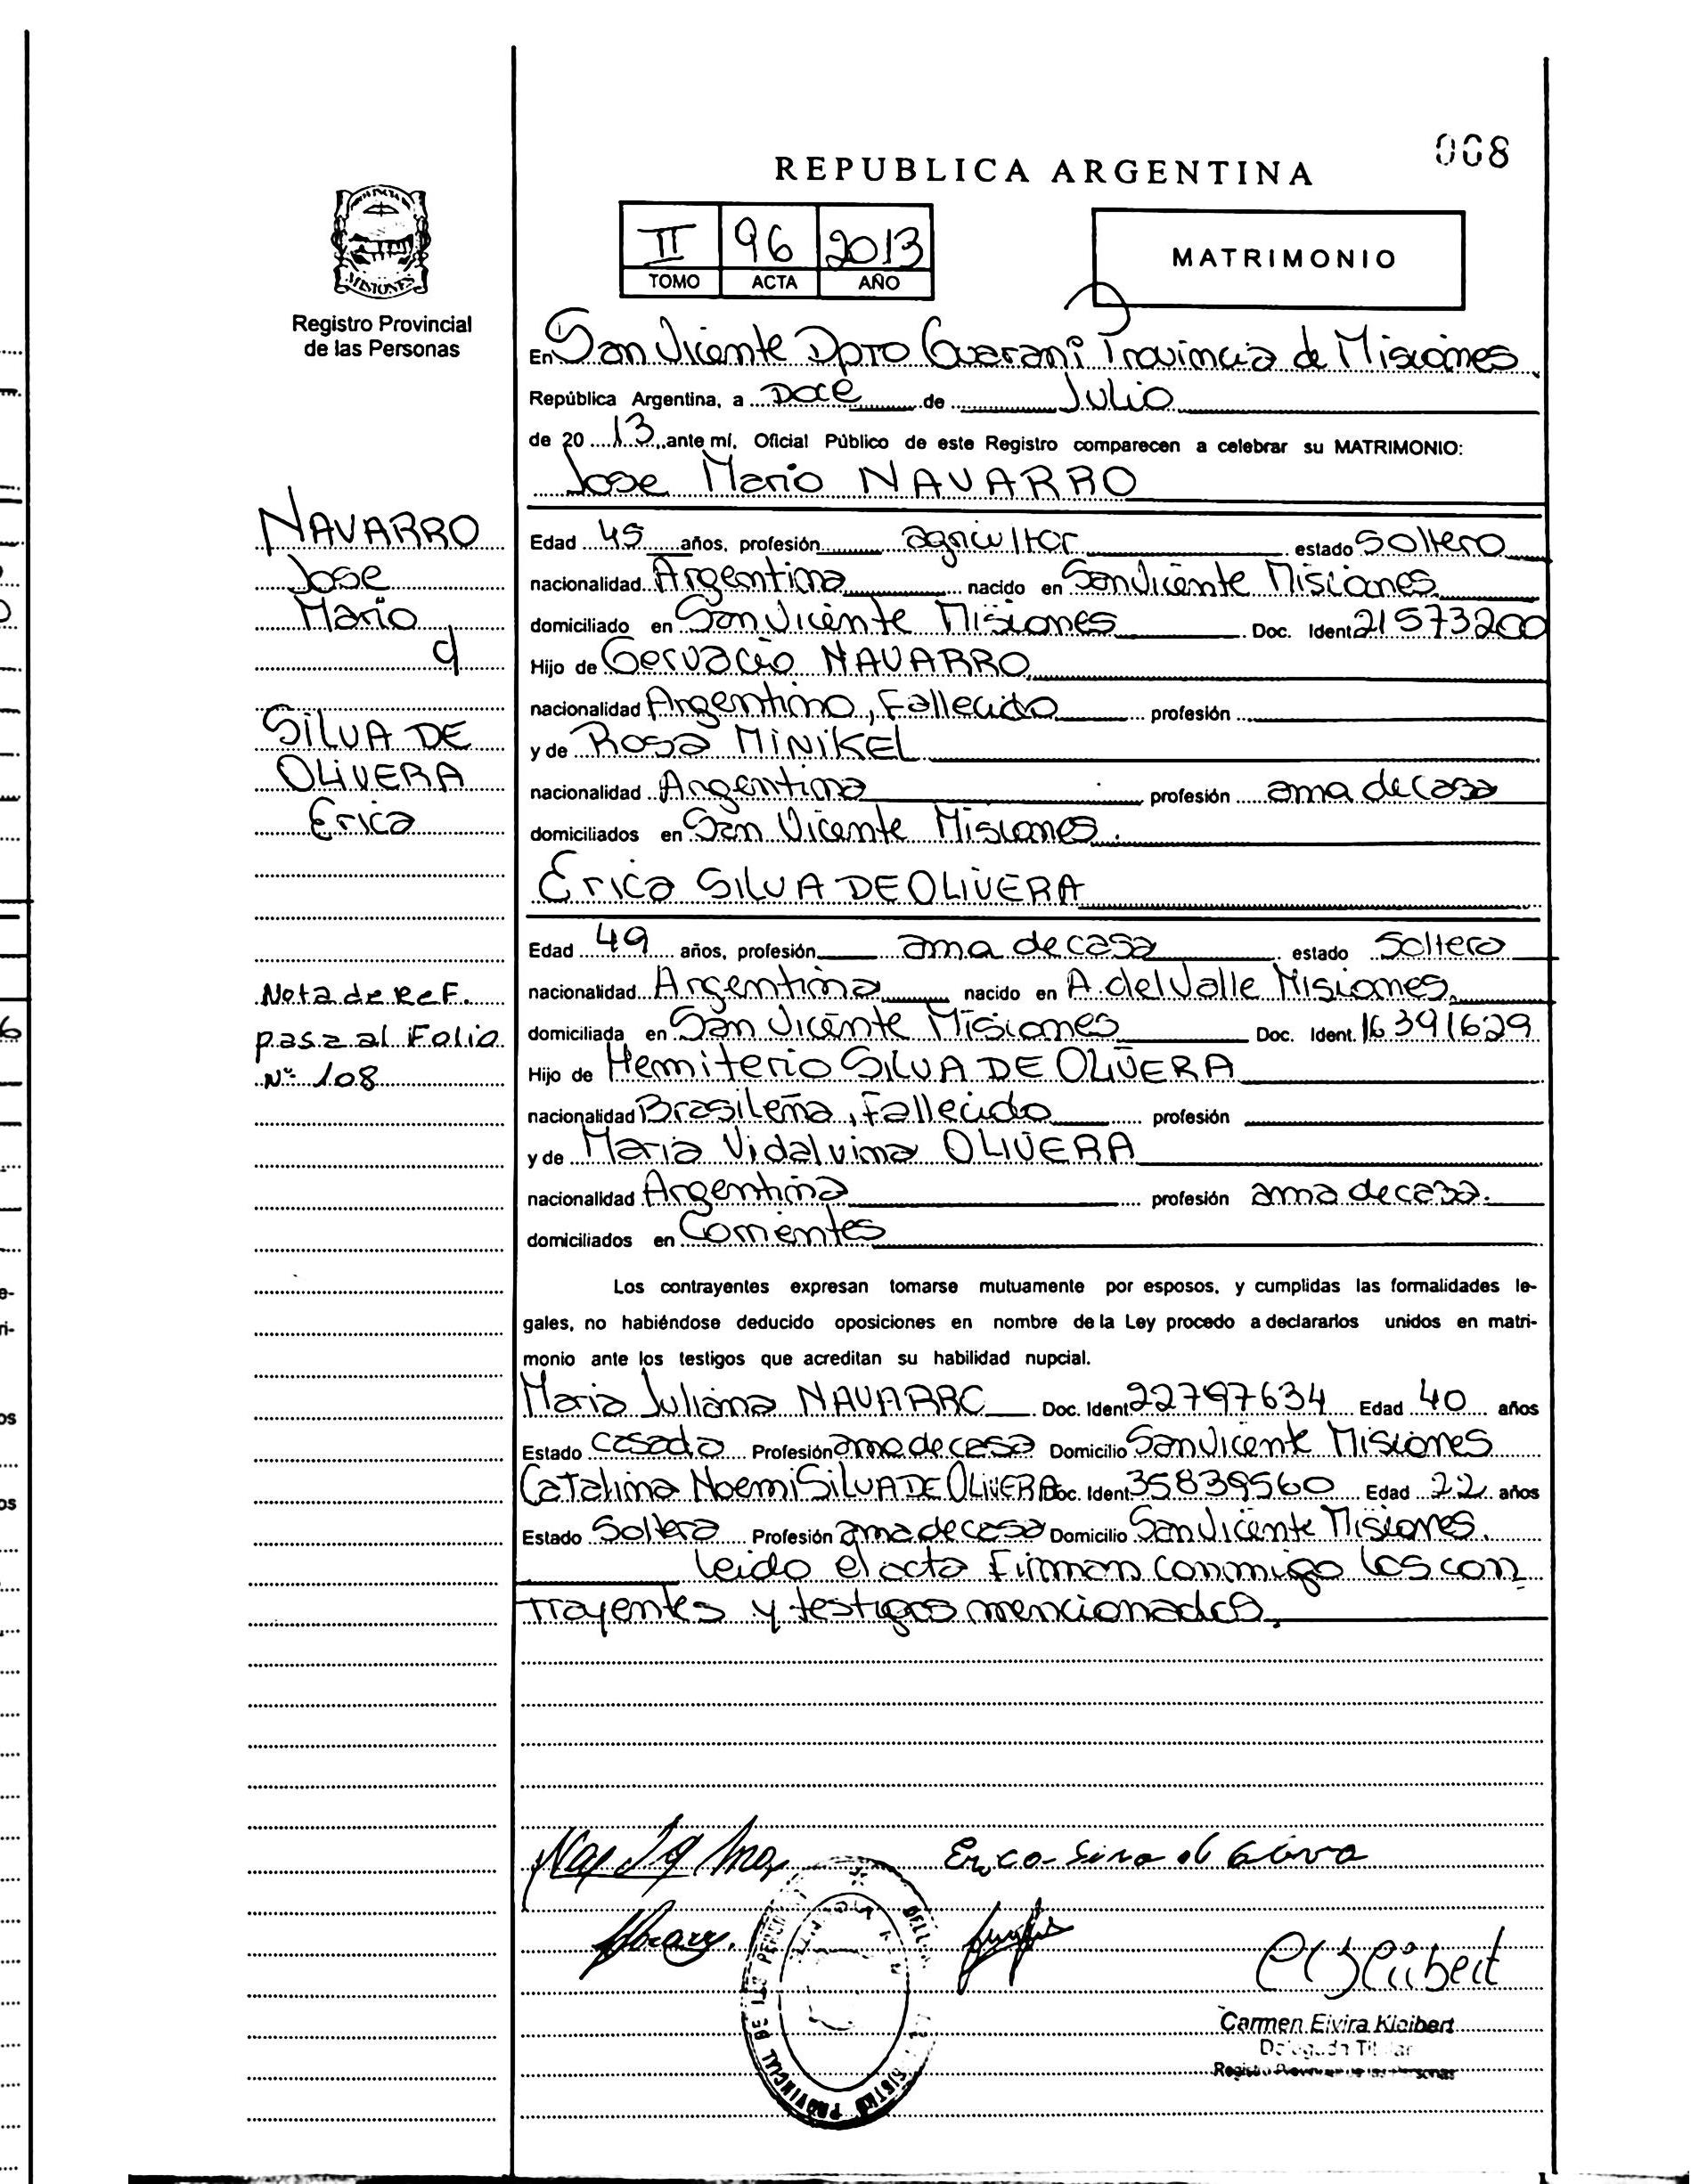 008
REPUBLICA ARGENTINA
II 96 2013
TOMO ACTA AÑO
MATRIMONIO
MISIONES
Registro Provincial
de las Personas
En San Vicente Dpto Guarani Provincia de Misiones
República Argentina, a Doce de Julio
de 20 13 ante mí, Oficial Público de este Registro comparecen a celebrar su MATRIMONIO:
Jose Mario NAVARRO
NAVARRO
Jose
Mario
SILVA DE
OLIVERA
Erica
Edad 45 años, profesión agricultor estado Soltero
nacionalidad Argentina nacido en San Vicente Misiones
domiciliado en San Vicente Misiones Doc. Ident 21573200
Hijo de Gervacio NAVARRO
nacionalidad Argentino, Fallecido profesión
y de Rosa MINIKEL
nacionalidad Argentina profesión ama de casa
domiciliados en San Vicente Misiones.
Erica SILVA DE OLIVERA
Edad 49 años, profesión ama de casa estado Soltera
nacionalidad Argentina nacido en A. del Valle Misiones
domiciliada en San Vicente Misiones Doc. Ident. 16391629
Hijo de Hemiterio SILVA DE OLIVERA
nacionalidad Brasileña, Fallecido profesión
y de Maria Vidalvina OLIVERA
nacionalidad Argentina profesión ama de casa.
domiciliados en Corrientes
Nota de Ref.
pasa al Folio
N° 108
Los contrayentes expresan tomarse mutuamente por esposos, y cumplidas las formalidades le-
gales, no habiéndose deducido oposiciones en nombre de la Ley procedo a declararlos unidos en matri-
monio ante los testigos que acreditan su habilidad nupcial.
Maria Juliana NAVARRO Doc. Ident 22797634 Edad 40 años
Estado Casada Profesión ama de casa Domicilio San Vicente Misiones
Catalina Noemi SILVA DE OLIVERA Doc. Ident 35839560 Edad 22 años
Estado Soltera Profesión ama de casa Domicilio San Vicente Misiones.
leido el acta Firman conmigo los con
trayentes y testigos mencionados.
Carmen Elvira Kleibert
Delegada Titular
Registro Provincial de las Personas